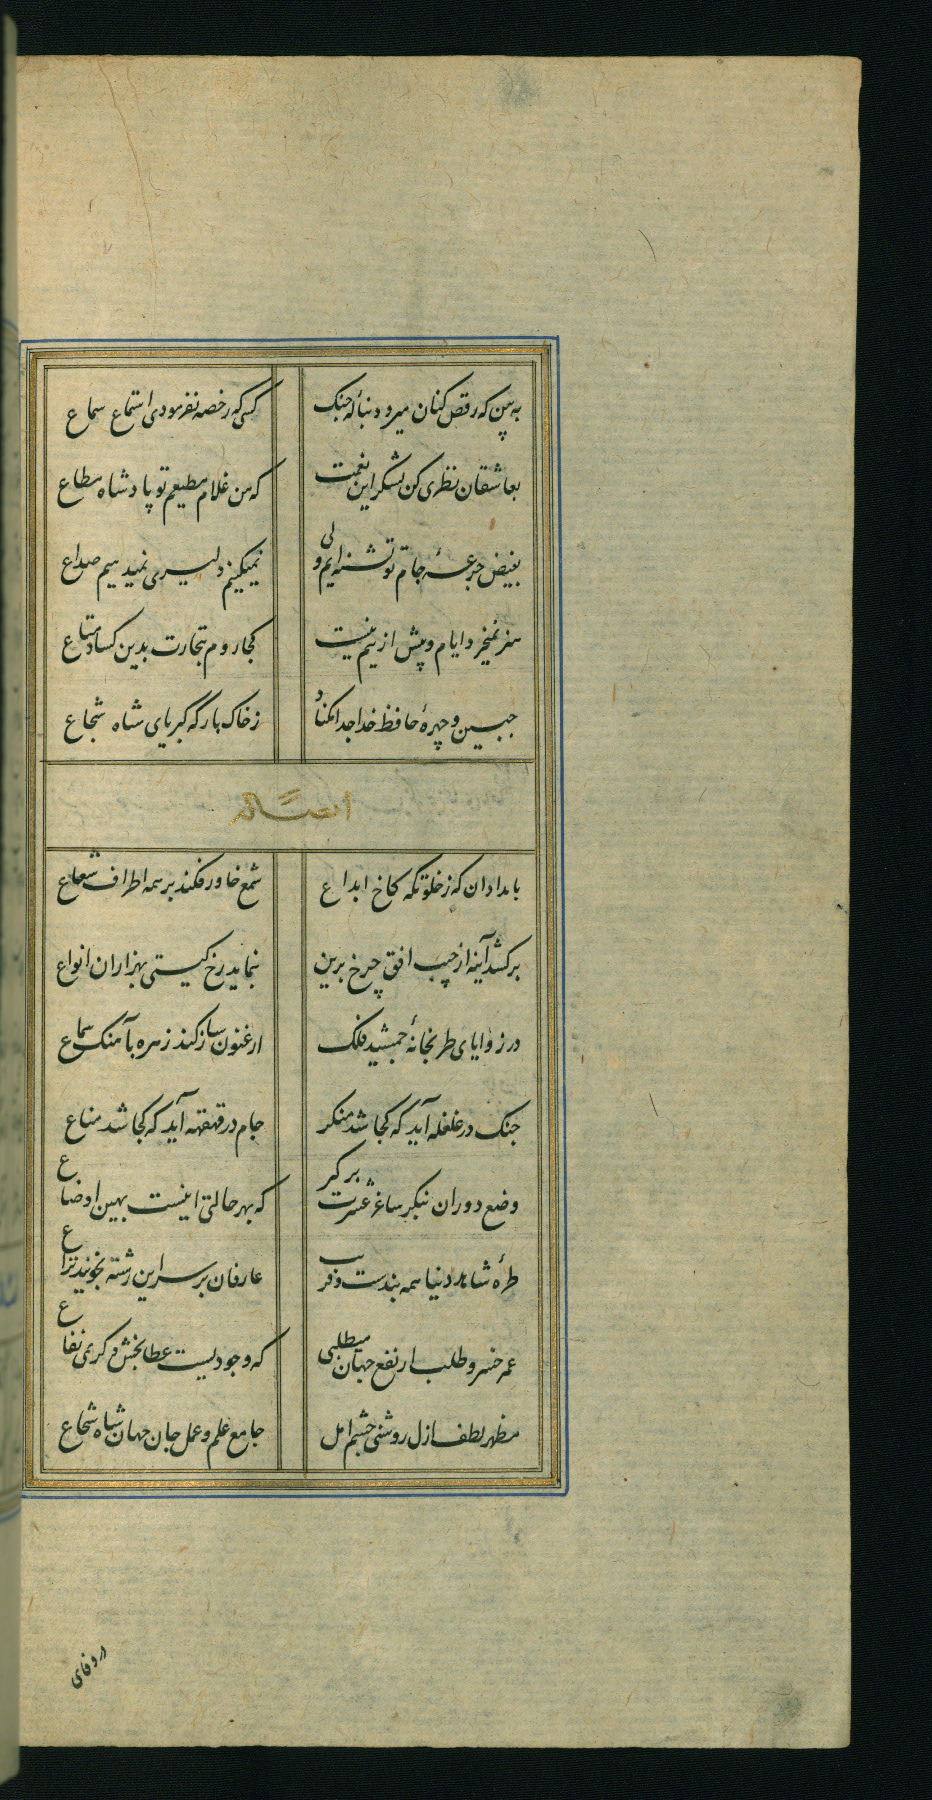 به بین که رقص کنان میرود بنالهٔ چنک کسی که رخصه نفرمودی استماع سماع
بعاشقان نظری کن بشکر این نعمت که من غلام مطیعم تو پادشاه مطاع
بفیض جرعهٔ جام تو تشنه ایم ولی نمیکنیم دلیری نمیدهیم صداع
هنر نمیخرد ایام و پیش ازینم نیست کجا روم بتجارت بدین کساد متاع
جبین و چهرهٔ حافظ خدا جدا مکناد ز خاک بارگه کبریای شاه شجاع
ایضاً له
بامدادان که ز خلوتکه کاخ ابداع شمع خاور فکند بر همه اطراف شعاع
برکشد آینه از جیب افق چرخ برین بنماید رخ کیتی بهزاران انواع
در زوایای طربخانهٔ جمشید فلک ارغنون ساز کند زهره بآهنک سماع
چنک در غلغله آید که کجا شد منکر جام در قهقهه آید که کجا شد مناع
وضع دوران بنکر ساغر عشرت برکیر که بهر حالتی اینست بهین اوضاع
طرهٔ شاهد دنیا همه بندست و فریب عارفان بر سر این رشته نجویند نزاع
عمر خسرو طلب ار نفع جهان میطلبی که وجودیست عطابخش و کری نفاع
مظهر لطف ازل روشنی چشم امل جامع علم و عمل جان جهان شاه شجاع
در وفای